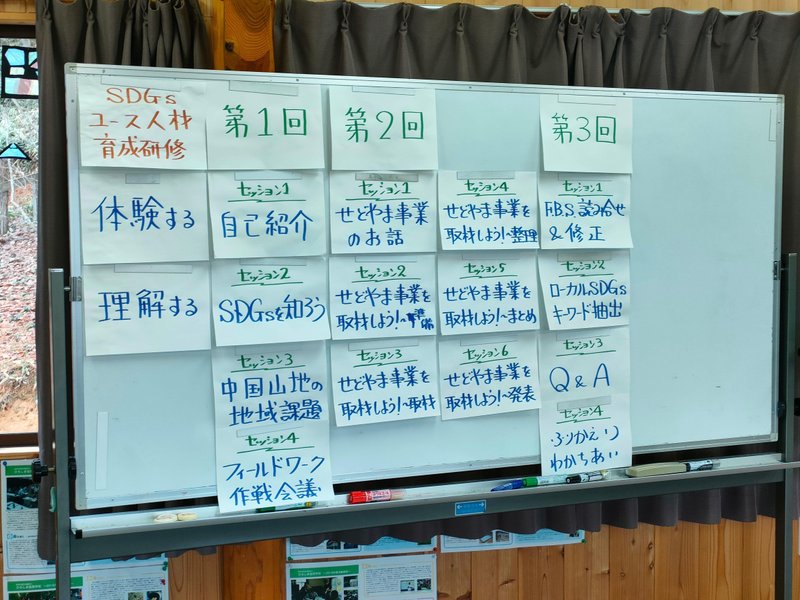 SDGs
ユース人材
育成研修
体験する
理解する
第1回
セッション1
自己紹介
セッション2
SDGsを知ろう
セッション3
中国山地の
地域課題
セッション4
フィールドワーク
作戦会議
第2回
セッション1
せどやま事業
のお話
セッション2
せどやま事業を
取材しよう!〜準備
セッション3
せどやま事業を
取材しよう!〜取材
セッション4
せどやま事業を
取材しよう!〜整理
セッション5
せどやま事業を
取材しよう!〜まとめ
セッション6
せどやま事業を
取材しよう!〜発表
第3回
セッション1
F.B.S.読み合せ
&修正
セッション2
ローカルSDGs
キワード抽出
セッション3
Q&A
セッション4
ふりかえり
わかちあい